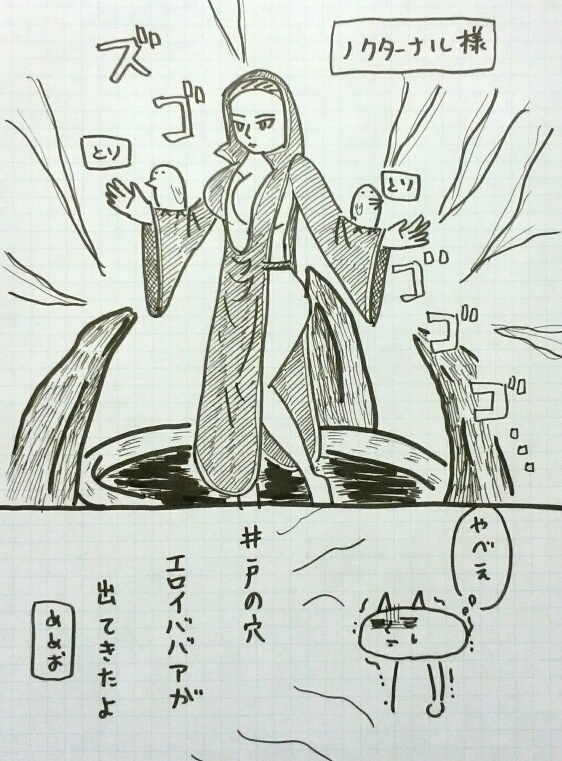 ノクターナル様
ズゴ
とり
とり
ゴゴゴ...
やべえ
井戸の穴
エロイババアが
出てきたよ
めめお